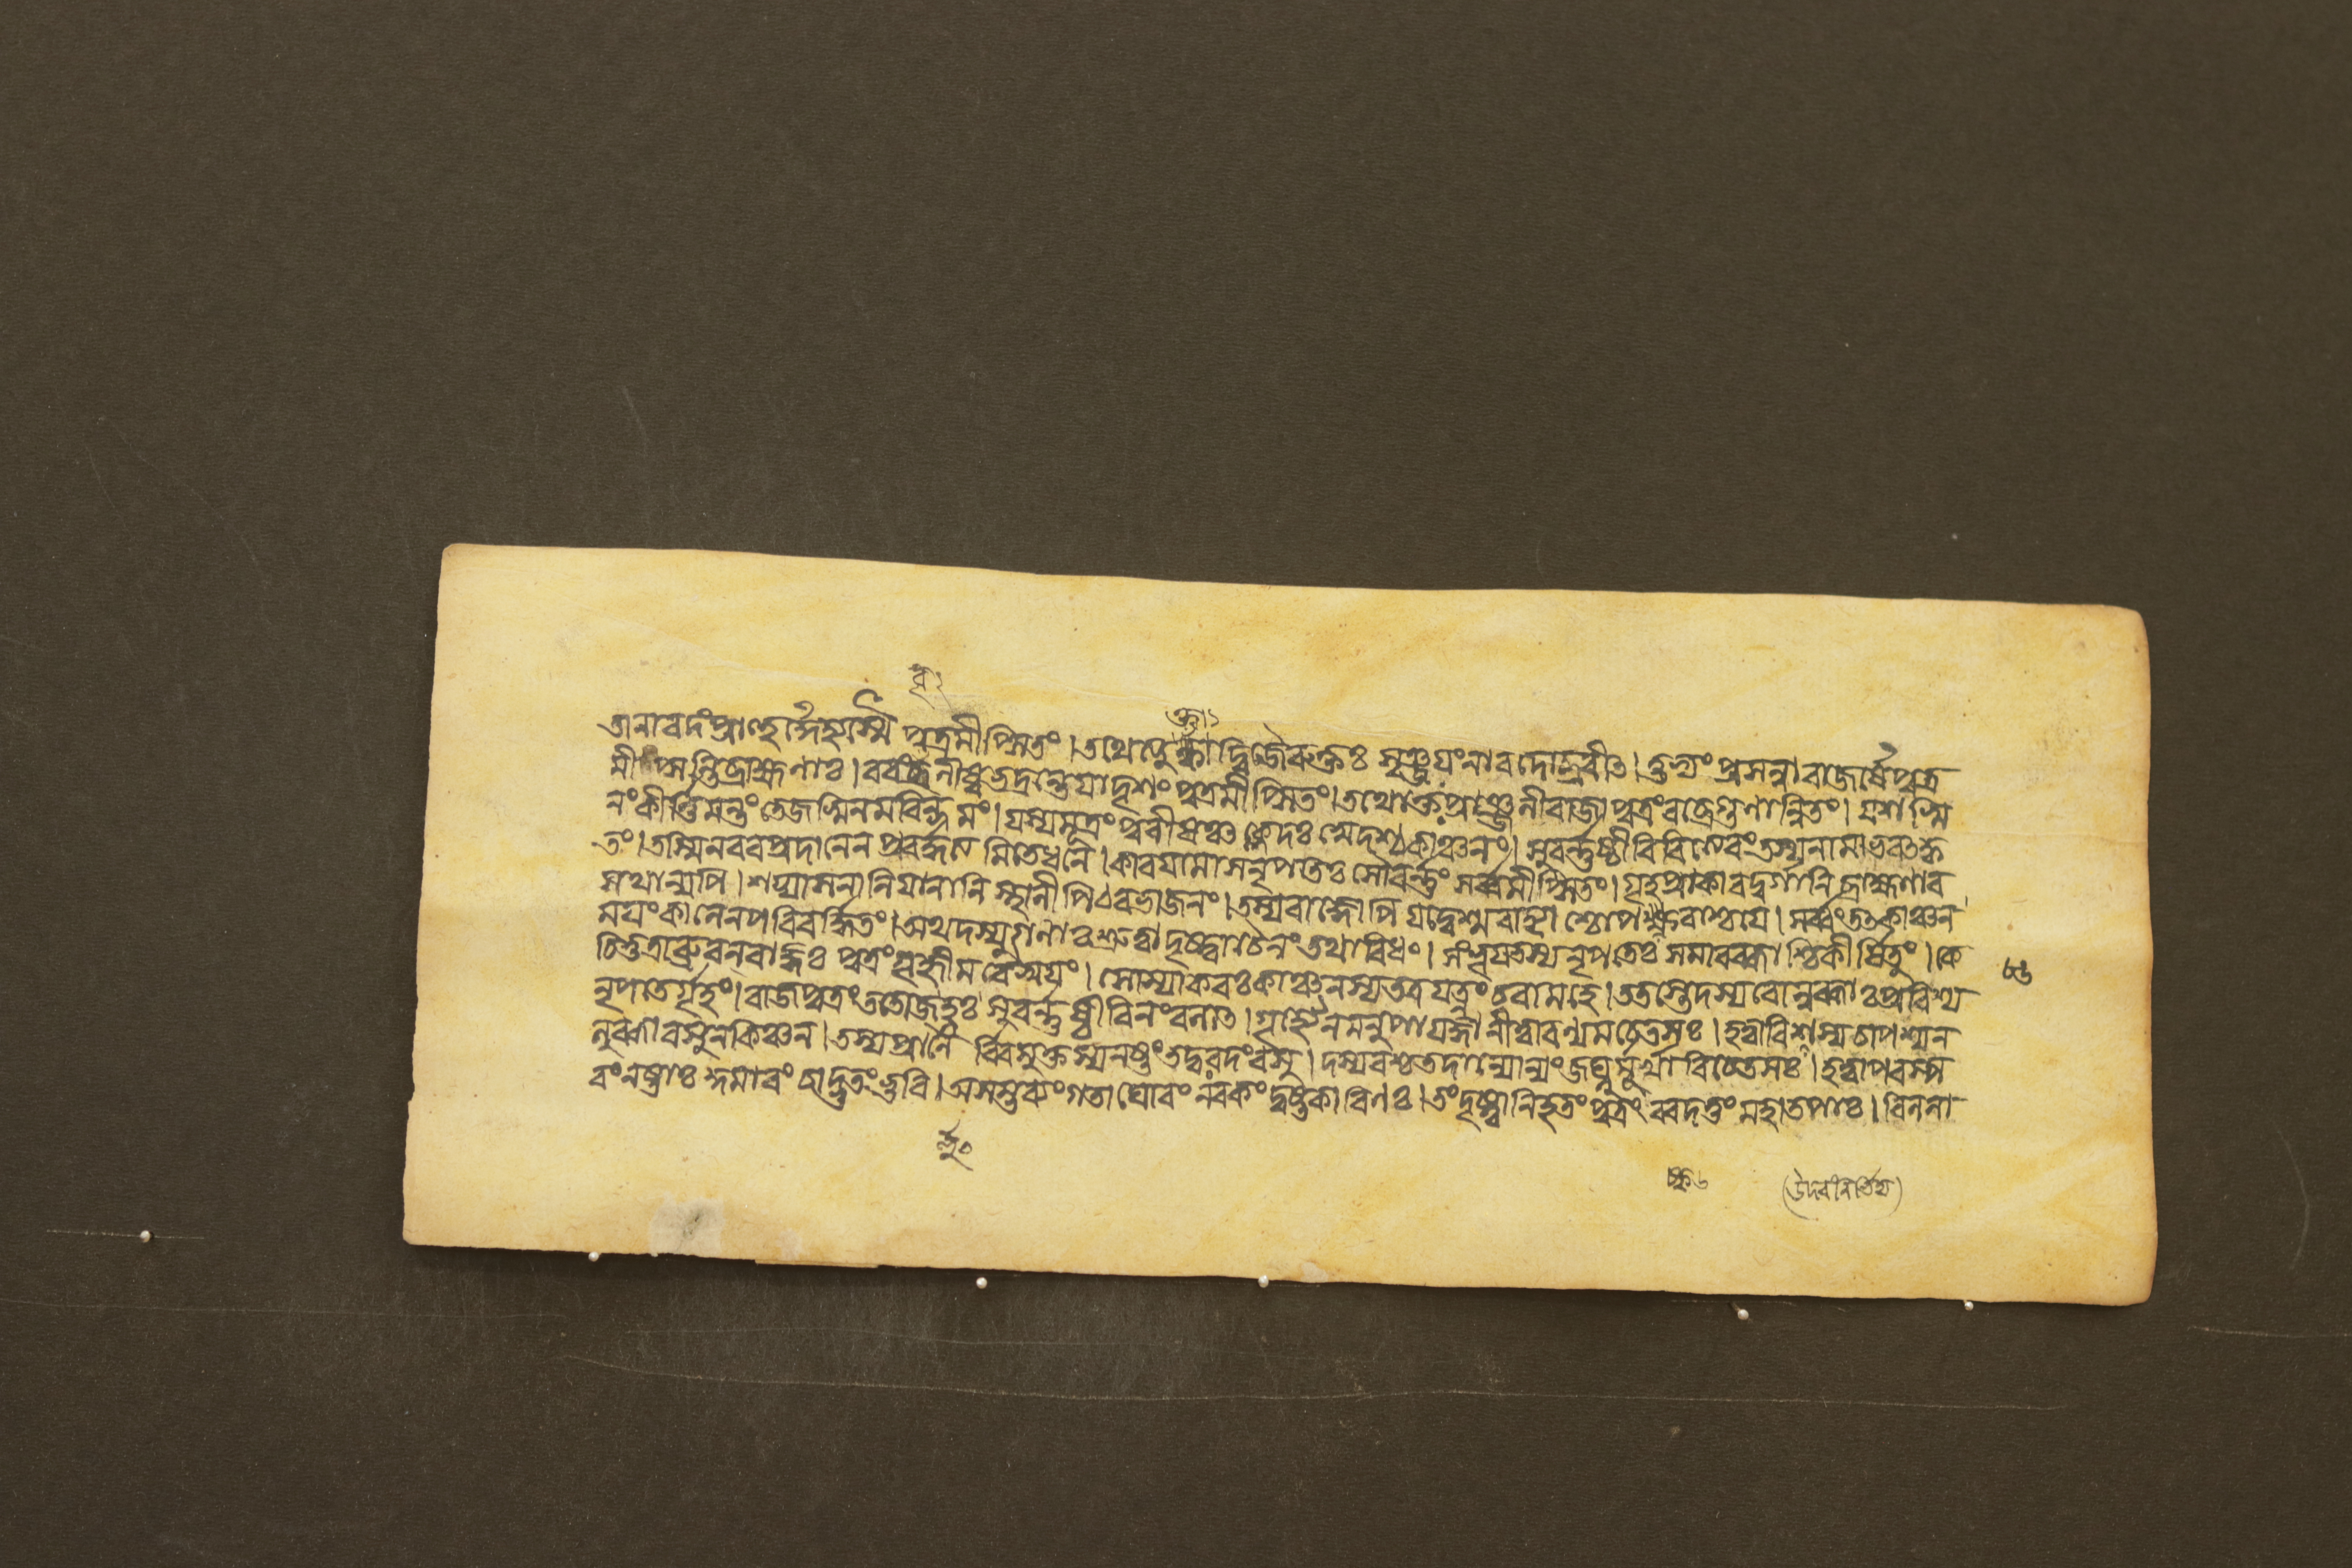 তানাবদংপ্রাহুর্দেহ্যস্মৈ পুত্রমীপ্সিতং।তথেত্যুক্ত্বা দ্বিজৈরুক্তঃ সৃঞ্জয়ংনারদোব্রবীৎ।তুভ্যংপ্রসন্নারাজর্ষেপুত্র
মীপ্সন্তিব্রাহ্মণাঃ।বরংবৃনীষ্বভদ্রন্তেযাদৃশংপুত্রমীপ্সিতং।তথোক্তঃপ্রাঞ্জলীরাজাপুত্রংবব্রেগুণান্বিতং।যশস্বি
নংকীর্ত্তিমন্তংতেজস্বিনমরিন্দমং।যস্যমূত্রংপুরীষঞ্চক্লেদঃস্বেদশ্চকাঞ্চনং।সুবর্ণষ্ঠীবিরিত্যেবংতস্যনামাভবৎকৃ
তং।তস্মিন্বরপ্রদানেনপ্রবর্দ্ধত্যমিতেধনে।কারয়ামাসনৃপতিঃসৌবর্ণংসর্ব্বমীপ্সিতং।গৃহপ্রাকারদুর্গানিব্রাহ্মণাব
সথান্যপি।শয্যাসনানিযানানিস্থালীপিঠরভাজনং।তস্যরাজ্ঞোপিযদ্বেশ্মবাহ্যাশ্চোপস্করাশ্চযে।সর্ব্বংতৎকাঞ্চন
ময়ংকালেনপরিবর্দ্ধিতং।অথদস্যুগণাঃশ্রুত্বাদৃষ্ট্বাচৈনংতথাবিধং।সংভূয়তস্যনৃপতেঃসমারব্ধাশ্চিকীর্ষিতুং।কে
চিত্তত্রাব্রুবন্রাজ্ঞঃপুত্রংগৃহ্ণীমবৈস্বয়ং।সোস্যাকরঃকাঞ্চনস্যতত্রযত্নংচরামহে।ততস্তেদস্যবোলুব্ধাঃপ্রবিশ্য
নৃপতের্গৃহং।রাজপুত্রংততোজহ্রুঃসুবর্ণষ্ঠীবিনংবলাৎ।গৃহ্যৈনমনুপায়জ্ঞানীত্বারণ্যমচেতসঃ।হত্বাবিশস্যচাপশ্যন
লুব্ধাবসুনকিঞ্চন।তস্যপ্রাণৈর্বিমুক্তস্যনষ্টংতদ্বরদংবসু।দস্যবশ্চতদান্যোন্যংজঘ্নুর্মূর্খাবিচেতসঃ।হত্বাপরস্প
রংনষ্টাঃকুমারংচাদ্ভুতংভুবি।গতাঘোরংনরকংদুষ্টকারিণঃ।তংদৃষ্ট্বানিহতংপুত্রংবরদত্তংমহাতপাঃ।বিললা